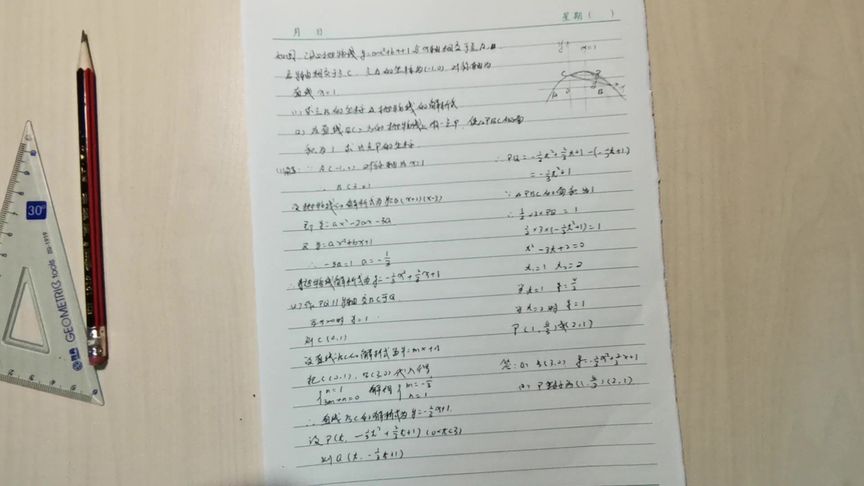 月 日
星期( )
如图,已知抛物线y=ax²+bx+1与x轴相交于点A,B
与y轴相交于点C,点A的坐标为(-1,0),对称轴为
直线x=1.
(1)求点B的坐标及抛物线的解析式
(2)在直线BC上方的抛物线上有一点P,使△PBC的面
积为1,求出点P的坐标.
y x=1
C P
A O B x
(1)解:∵A(-1,0) 对称轴为x=1
∴B(3,0)
设抛物线的解析式为y=a(x+1)(x-3)
即y=ax²-2ax-3a
又y=ax²+bx+1
∴-3a=1 a=-1/3
∴抛物线解析式为y=-1/3x²+2/3x+1
(2)作PQ∥y轴交BC于Q
当x=0时y=1
则C(0,1)
设直线BC的解析式为y=mx+n
把C(0,1),B(3,0)代入得
{n=1 3m+n=0 解得{m=-1/3 n=1
∴直线BC的解析式为y=-1/3x+1.
设P(t,-1/3t²+2/3t+1)(0<t<3)
则Q(t,-1/3t+1)
∴PQ=-1/3t²+2/3t+1-(-1/3t+1)
=-1/3t²+t
∵△PBC的面积为1
∴1/2×3×PQ=1
1/2×3×(-1/3t²+t)=1
t²-3t+2=0
t₁=1 t₂=2
当t=1 y=4/3
当t=2时y=1
P(1,4/3)或(2,1)
答:(1)B(3,0) y=-1/3x²+2/3x+1
(2)P坐标为(1,4/3)(2,1)
30°
GEOMETRIC tools